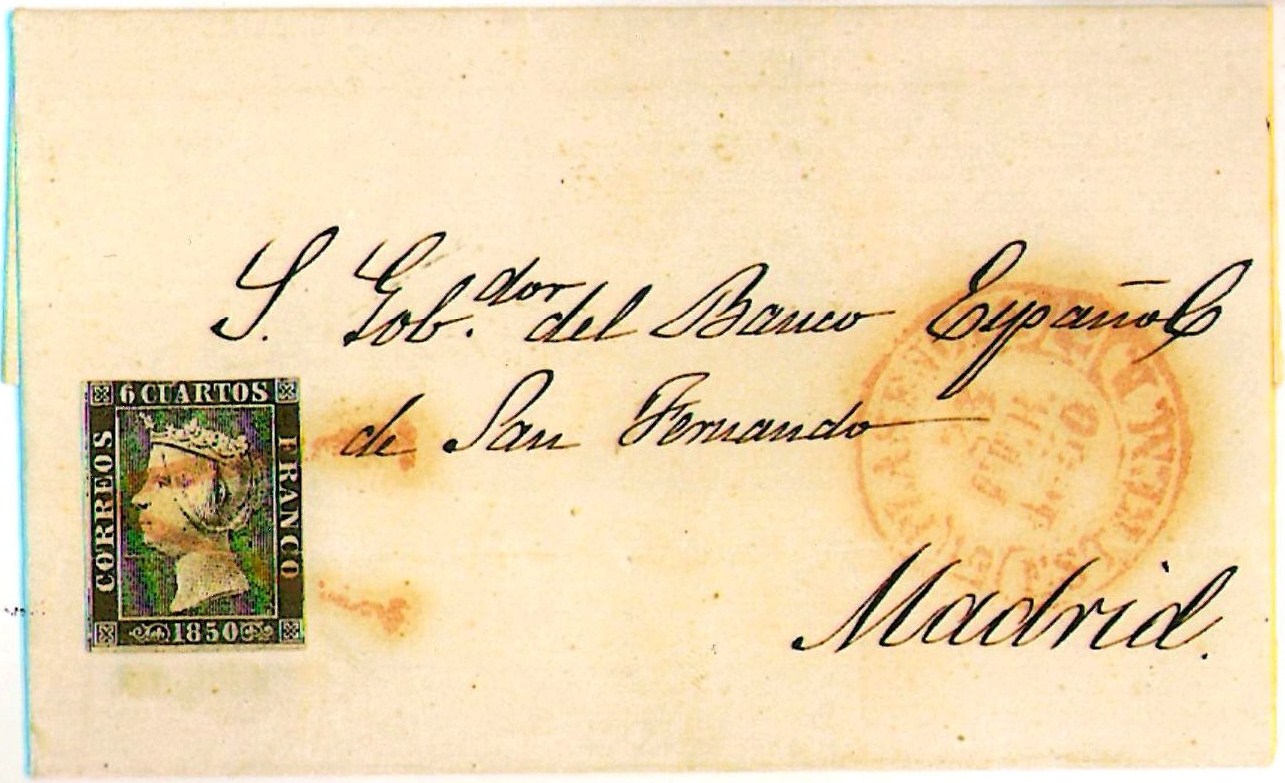 S. Gob.dor del Banco Español
de San Fernando
Madrid.
6 CUARTOS
CORREOS
FRANCO
1850
1850